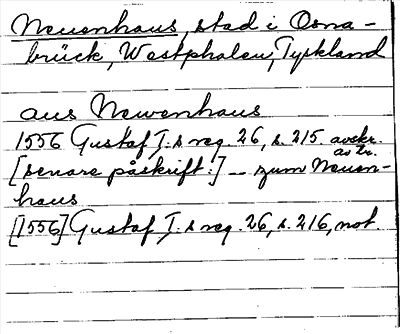 Neuenhaus, stad i Osna-
brück, Westphalen, Tyskland
aus Newenhaus
1556 Gustaf I.s reg. 26, s. 215. avskr.
av tr.
[senare påskrift:] -- zum Neuen-
haus
[1556] Gustaf I.s reg. 26, s. 216, not.